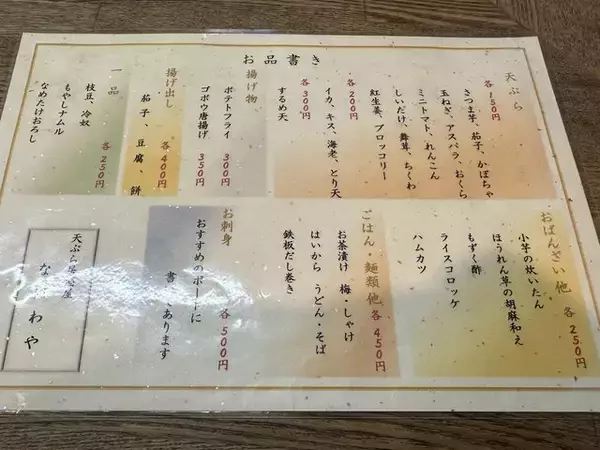 お品書き
天ぷら
各150円
さつま芋、茄子、かぼちゃ
玉ねぎ、アスパラ、おくら
ミニトマト、れんこん
しいだけ、舞茸、ちくわ
紅生姜、ブロッコリー
各200円
イカ、キス、海老、とり天
各300円
するめ天
揚げ物
ポテトフライ 300円
ゴボウ唐揚げ 350円
揚げ出し
茄子、豆腐、餅
各400円
一品
枝豆、冷奴
もやしナムル
なめたけおろし
各250円
おばんざい他 各250円
小芋の炊いたん
ほうれん草の胡麻和え
もずく酢
ライスコロッケ
ハムカツ
ごはん・麺類他 各450円
お茶漬け 梅・しゃけ
はいから うどん・そば
鉄板だし巻き
お刺身 各500円
おすすめのボードに
書 てあります
天ぷら居心屋
な わや